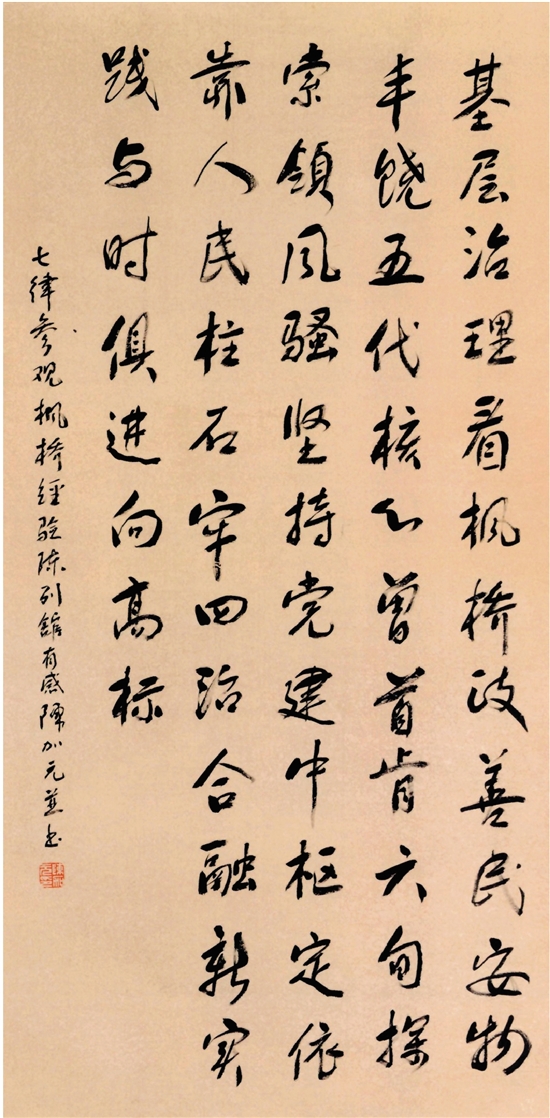 基层治理看枫桥政善民安物
丰饶五代核心曾首肯六旬探
索领风骚坚持党建中枢定依
靠人民柱石牢四治合融新实
践与时俱进向高标
七律参观枫桥经验陈列馆有感陈加元并书